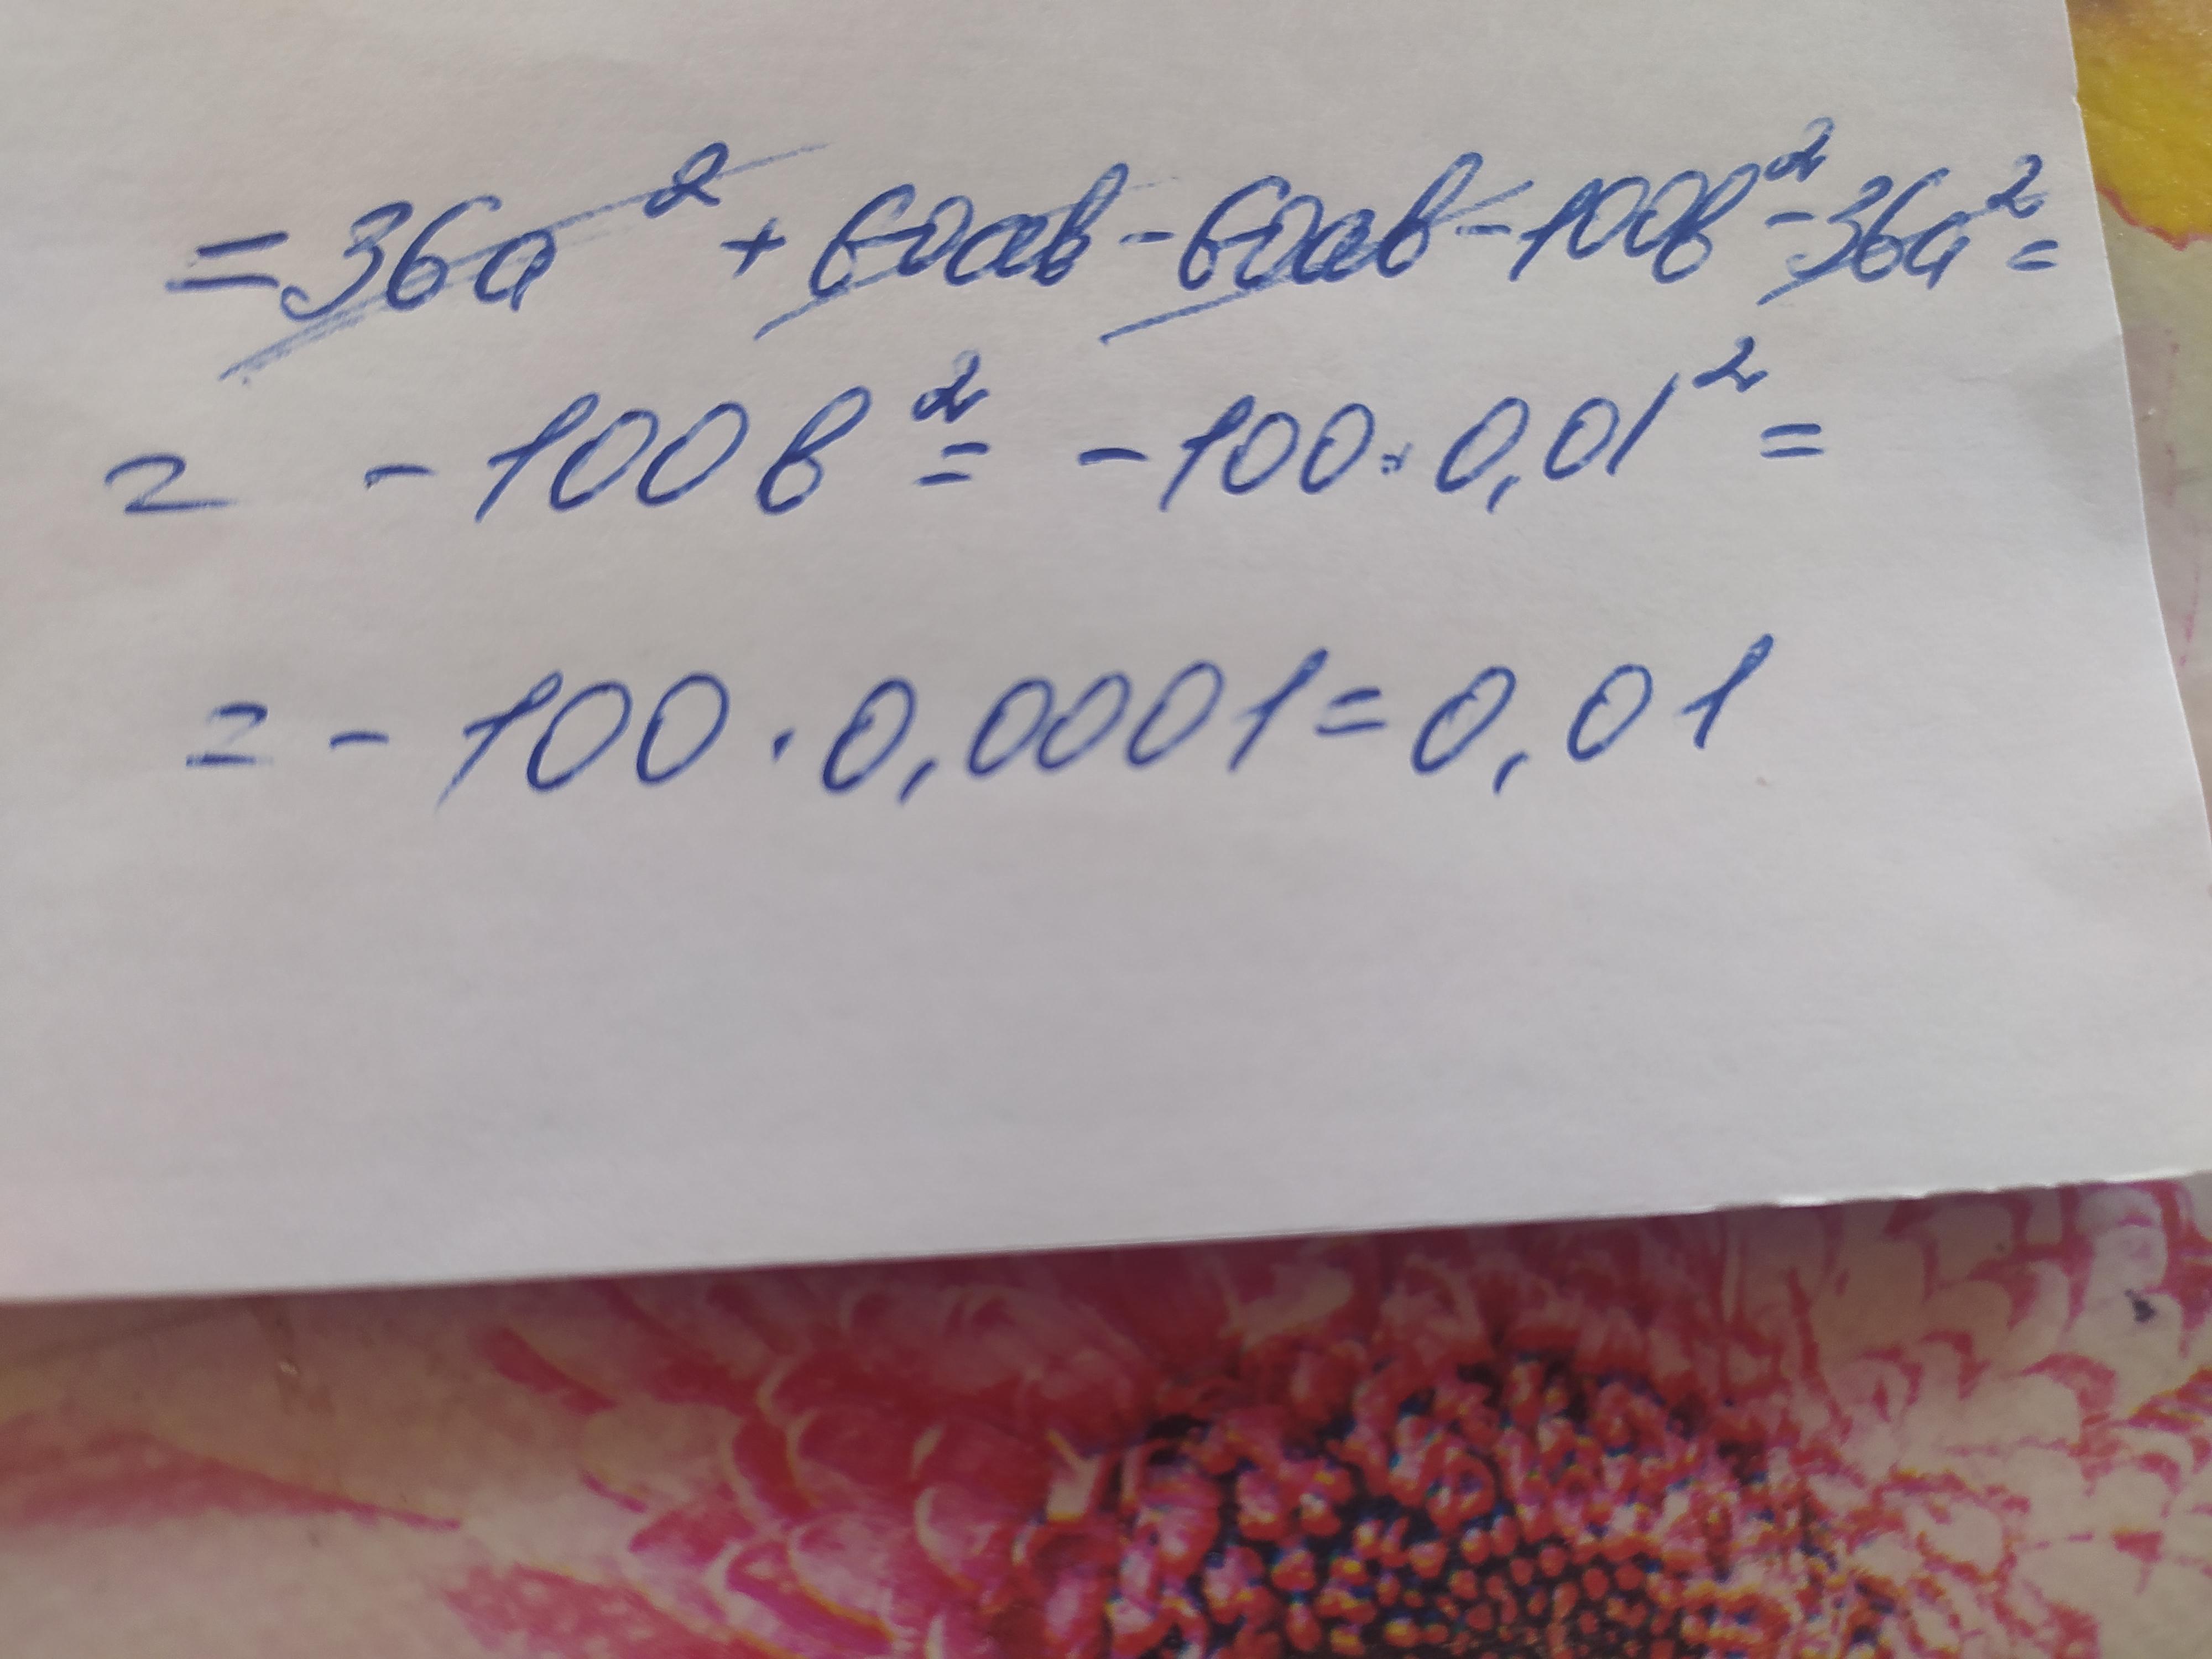 =36a² + 60ab - 60ab - 100b² - 36a² =
= - 100b² = - 100 · 0,01² =
= - 100 · 0,0001 = 0,01